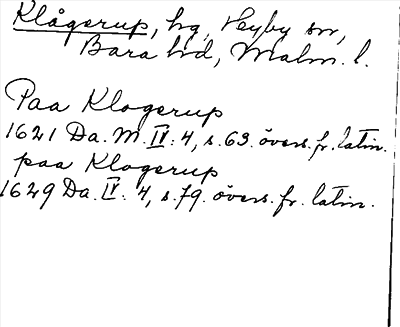 Klågerup, hg, Hyby sn,
Bara hd, Malm. l.
Paa Klogerup
1621 Da. M. IV: 4, s. 63. övers. fr. latin.
paa Klogerup
1629 Da. IV: 4, s. 79. övers. fr. latin.